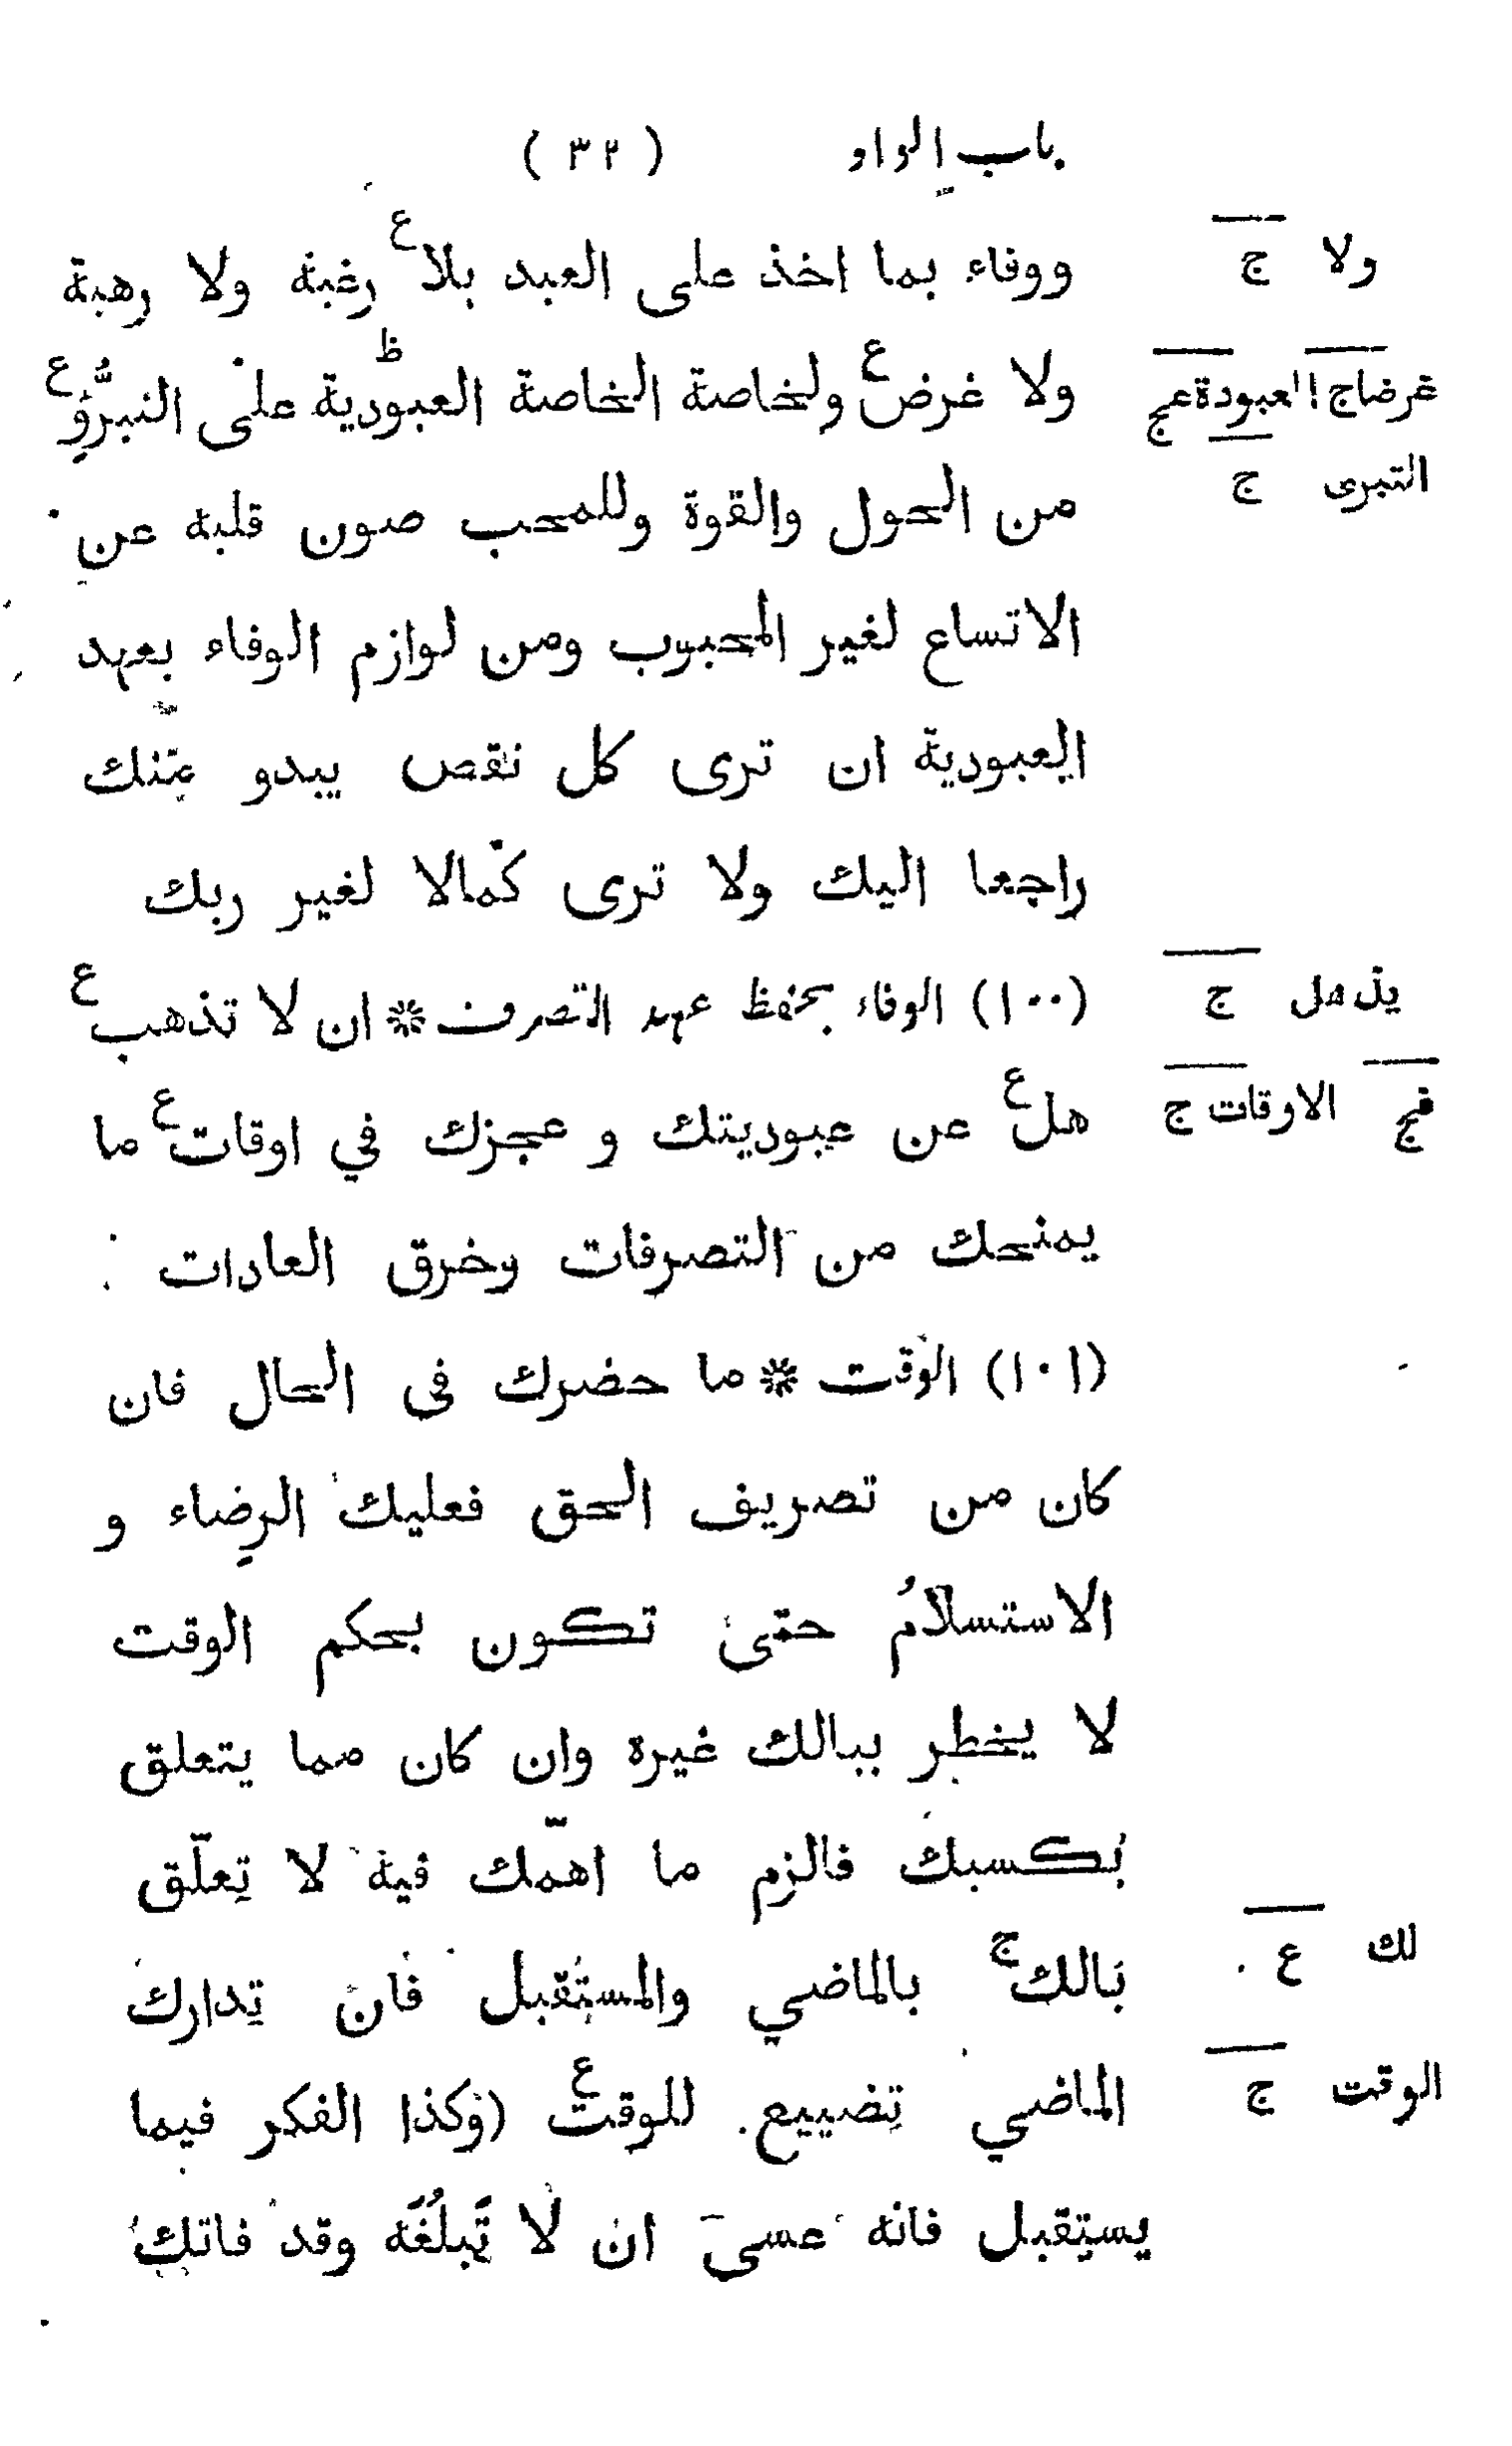 باب الواو ( ٣٢ )
ووفاء بما اخذ على العبد بلا ع رغبة ولا رهبة
ولا ج
ولا غرض ع ولخاصة الخاصة العبودية ظ على التبرُّؤ ع
غرضا ج العبودة عج
من الحول والقوة وللمحب صون قلبه عن
التبرى ج
الاتساع لغير المحبوب ومن لوازم الوفاء بعهد
العبودية ان ترى كل نقص يبدو منك
راجعا اليك ولا ترى كمالا لغير ربك
(١٠٠) الوفاء بحفظ عهد التصرف * ان لا تذهب ع
يذهل ج
هل ع عن عبوديتك و عجزك في اوقات ع ما
الاوقات ج
يمنحك من التصرفات وخرق العادات
(١٠١) الوقت * ما حضرك فى الحال فان
كان من تصريف الحق فعليك الرضاء و
الاستسلام حتى تكون بحكم الوقت
لا يخطر ببالك غيره وان كان مما يتعلق
بكسبك فالزم ما اهمّك فيه لا تعلّق
بالك ج بالماضي والمستقبل فان تدارك
لك ع
الماضي تضييع للوقت ع (وكذا الفكر فيما
الوقت ج
يستقبل فانه عسى ان لا تبلُغه وقد فاتك